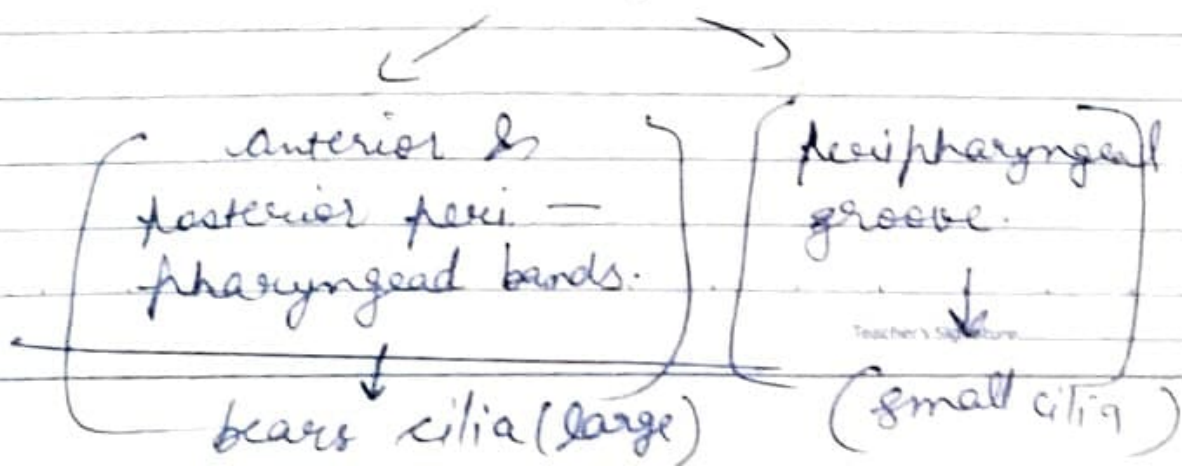 anterior &
posterior peri —
pharyngeal bands.
bears cilia (large)
peripharyngeal
groove.
Teacher's Signature
(small cilia)